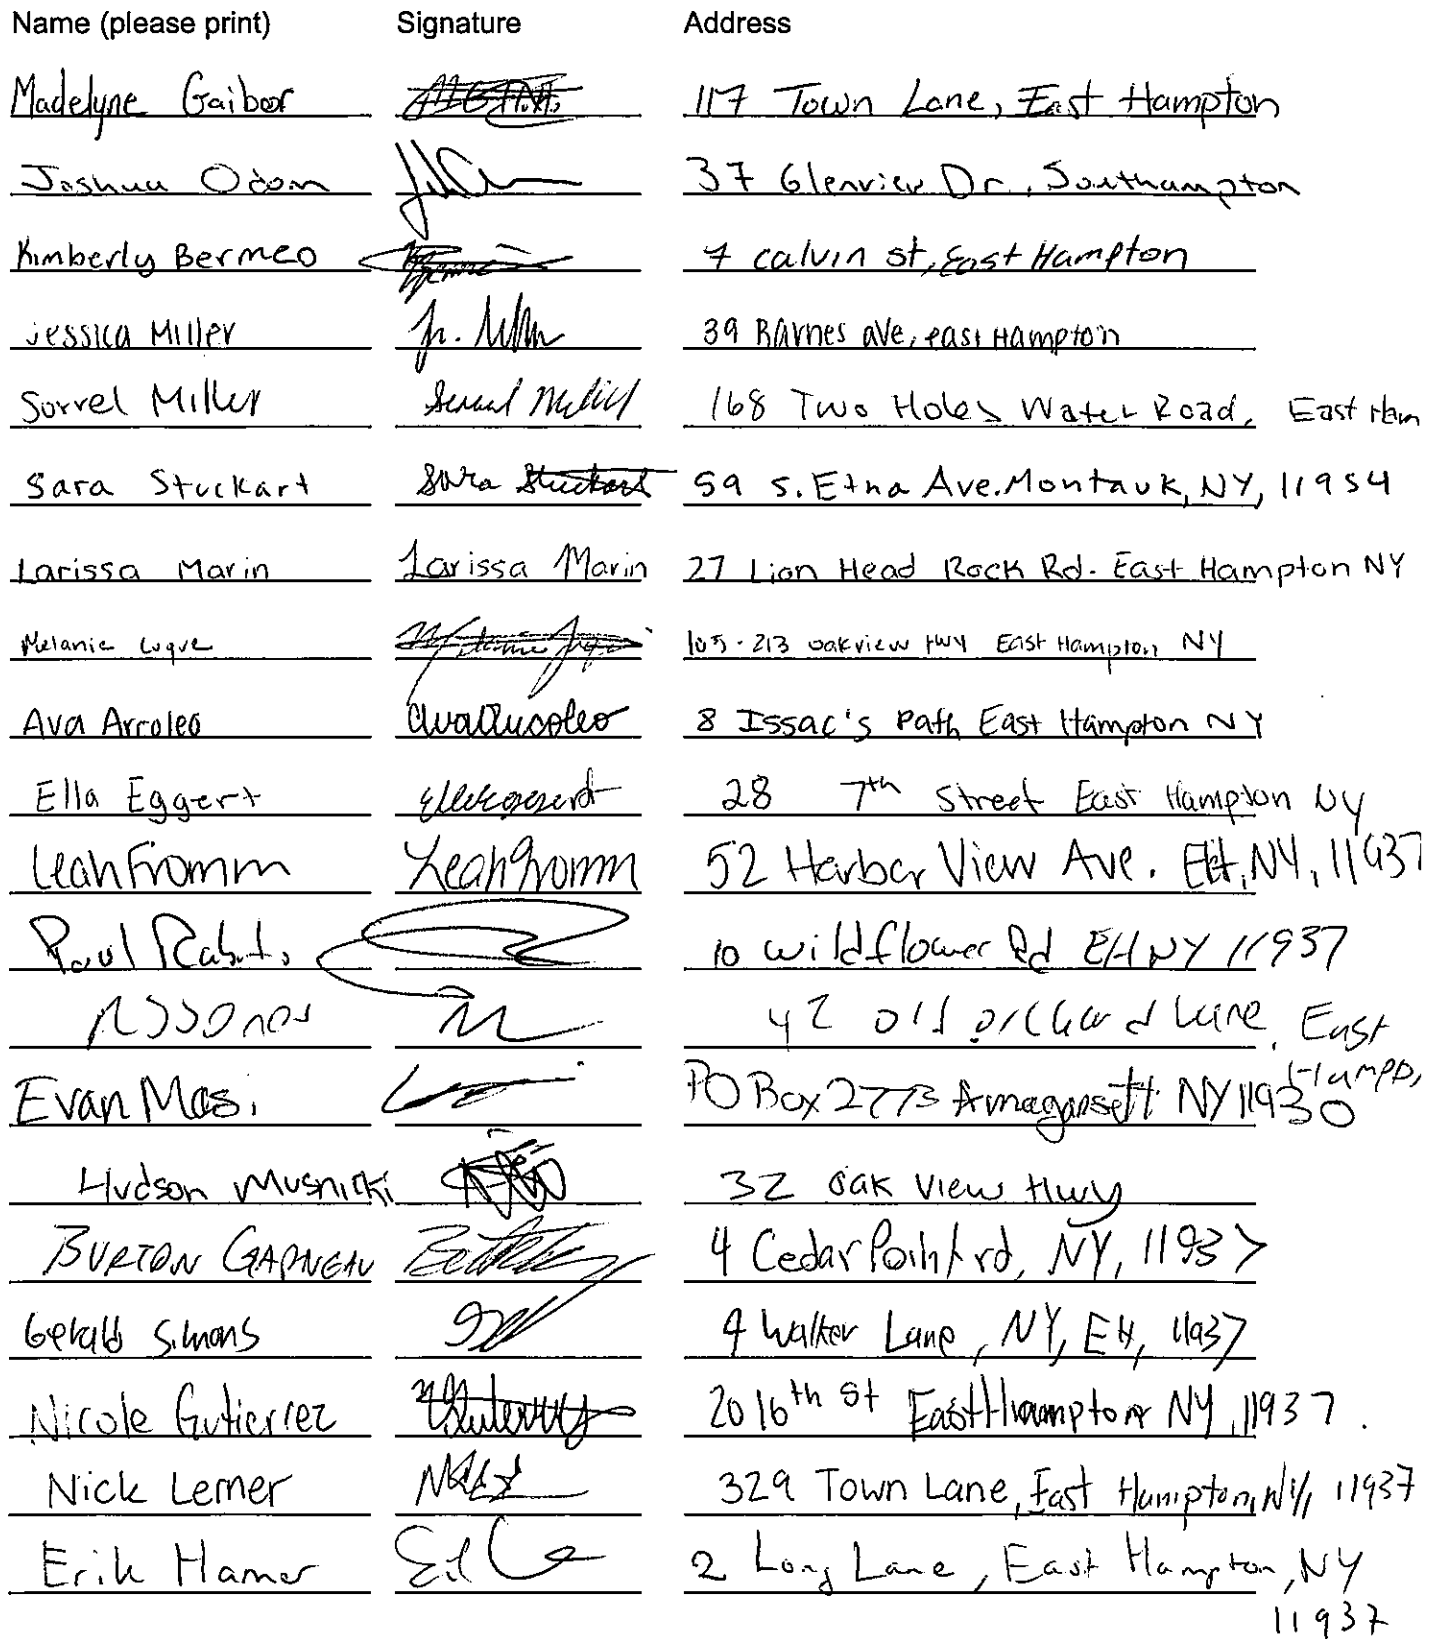 Name (please print) Signature Address
Madelyne Gaibor 117 Town Lane, East Hampton
Joshua Odom 37 Glenview Dr., Southampton
Kimberly Bermeo 7 calvin st, East Hampton
Jessica Miller 39 Barnes ave, east Hampton
Sorrel Miller 168 Two Holes Water Road, East Ham
Sara Stuckart Sara Stuckart 59 S. Etna Ave. Montauk, NY, 11954
Larissa Marin Larissa Marin 27 Lion Head Rock Rd. East Hampton NY
Melanie Luque 105-213 oakview HWY East Hampton NY
Ava Arcoleo Ava Arcoleo 8 Issac's Path East Hampton NY
Ella Eggert Ella Eggert 28 7th Street East Hampton NY
Leah Fromm Leah Fromm 52 Harbor View Ave. EH, NY, 11937
Paul 10 Wildflower Rd EH NY 11937
42 old orchard Lane, East
Hampo,
Evan Masi PO Box 2773 Amagansett NY 11930
Hudson Musnicki 32 Oak View Hwy
BURTON GARNEAU 4 Cedar Point rd, NY, 11937
Gerald Simons 4 Walker Lane, NY, EH, 11937
Nicole Gutierrez 20 16th St East Hampton NY, 11937.
Nick Lerner 329 Town Lane, East Hampton, NY, 11937
Erik Hamer 2 Long Lane, East Hampton, NY
11937